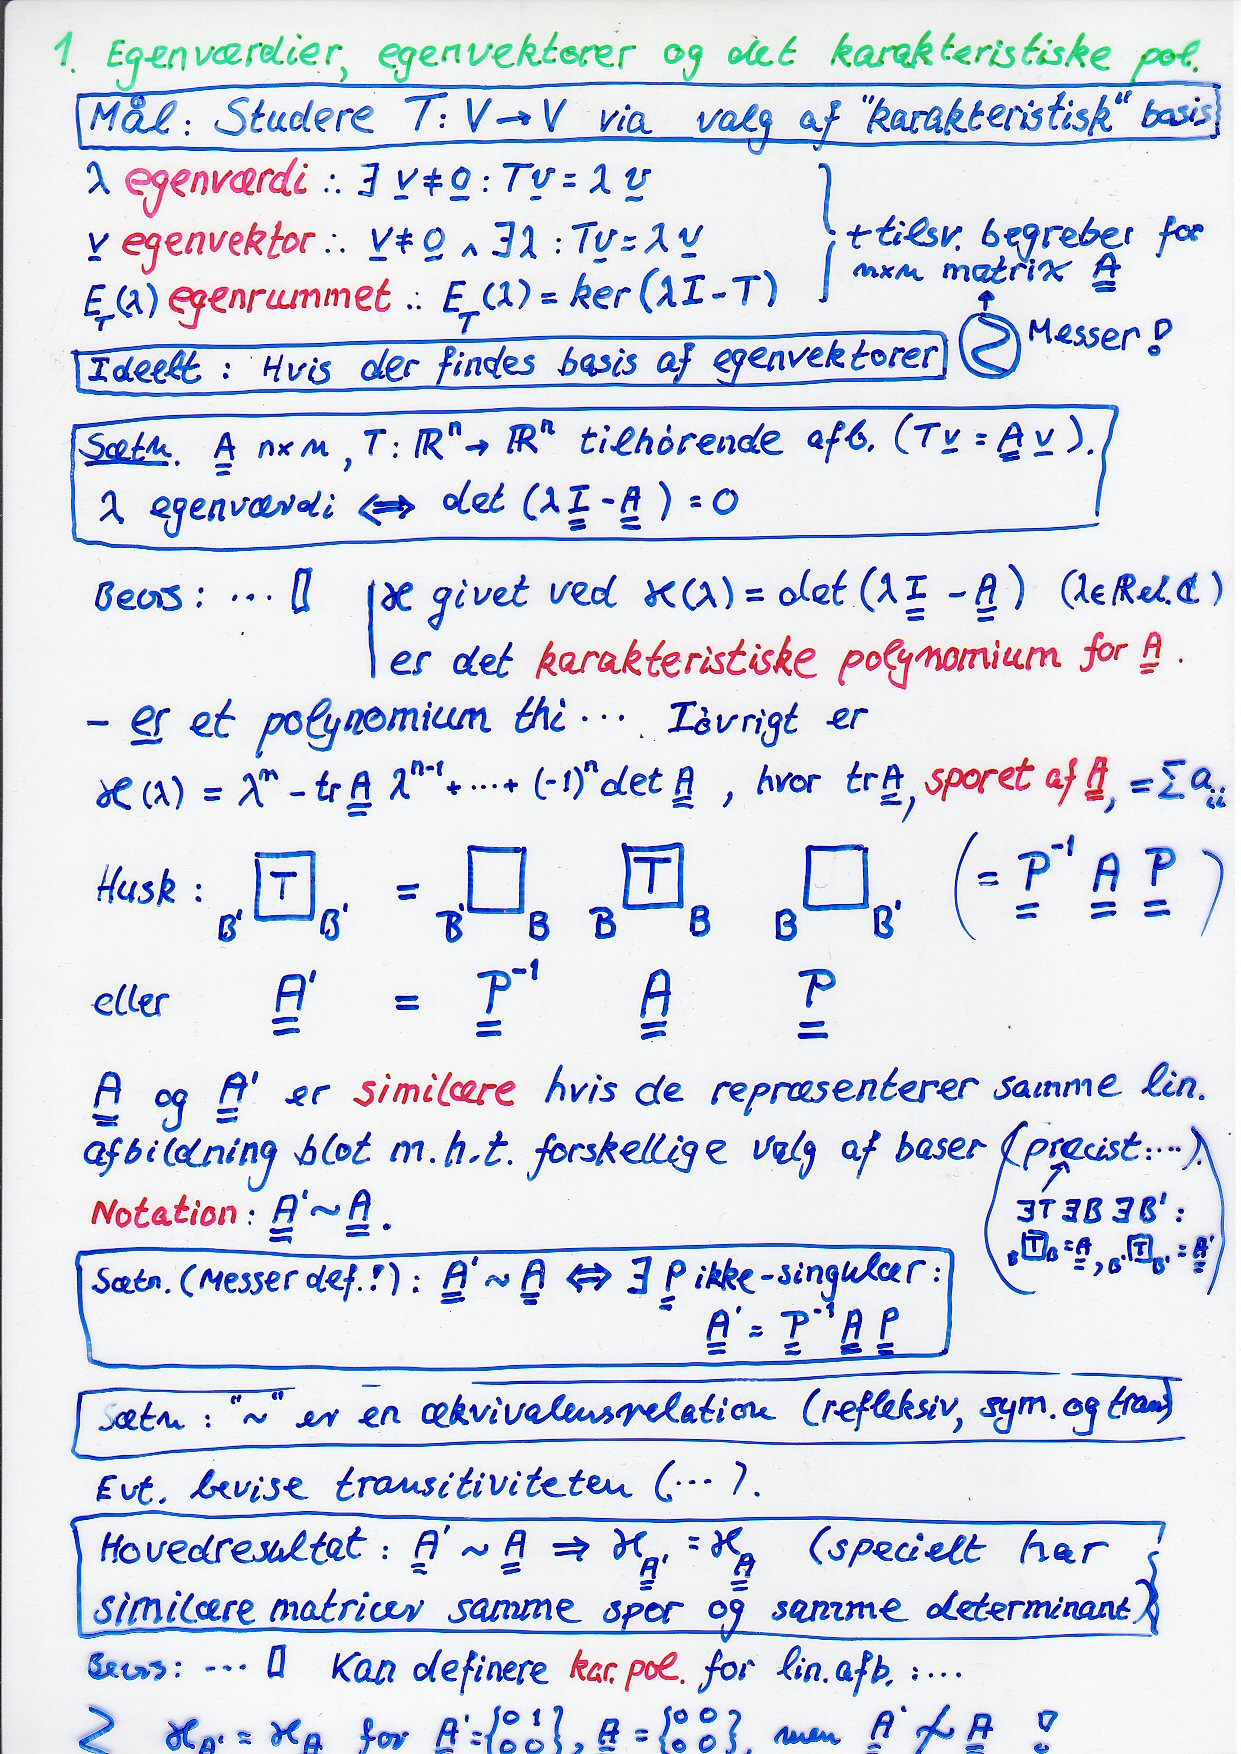 1. Egenværdier, egenvektorer og det karakteristiske pol.
Mål: Studere T: V → V via valg af "karakteristisk" basis
λ egenværdi ∴ ∃ v ≠ 0 : Tv = λ v
v egenvektor ∴ v ≠ 0 ∧ ∃ λ : Tv = λ v
+ tilsv. begreber for
n×n matrix A
E_T(λ) egenrummet ∴ E_T(λ) = ker (λI - T)
Messer!
Ideelt : Hvis der findes basis af egenvektorer
Sætn. A n×n, T: ℝⁿ → ℝⁿ tilhørende afb. (Tv = A v).
λ egenværdi ⇔ det (λ I - A) = 0
Bevis : ... ▯ ϰ givet ved ϰ(λ) = det (λ I - A) (λ ∈ ℝ el. ℂ)
er det karakteristiske polynomium for A.
- er et polynomium thi ... Iøvrigt er
ϰ(λ) = λⁿ - tr A λⁿ⁻¹ + ... + (-1)ⁿ det A , hvor tr A, sporet af A, = Σ a_ii
Husk : B' T B' = B' B B T B B B' (= P⁻¹ A P)
eller A' = P⁻¹ A P
A og A' er similære hvis de repræsenterer samme lin.
afbildning blot m.h.t. forskellige valg af baser (præcist:...).
Notation: A' ~ A.
∃T ∃B ∃B' :
B T B = A, B' T B' = A'
Sætn. (Messer def.!) : A' ~ A ⇔ ∃ P ikke-singulær :
A' = P⁻¹ A P
Sætn : "~" er en ækvivalensrelation (refleksiv, sym. og trans)
Evt. bevise transitiviteten (...).
Hovedresultat : A' ~ A ⇒ ϰ_A' = ϰ_A (specielt har
similære matricer samme spor og samme determinant)
Bevis: ... ▯ Kan definere kar. pol. for lin. afb. : ...
ϰ_A' = ϰ_A for A' = {0 1 0 0}, A = {0 0 0 0}, men A' ≁ A !